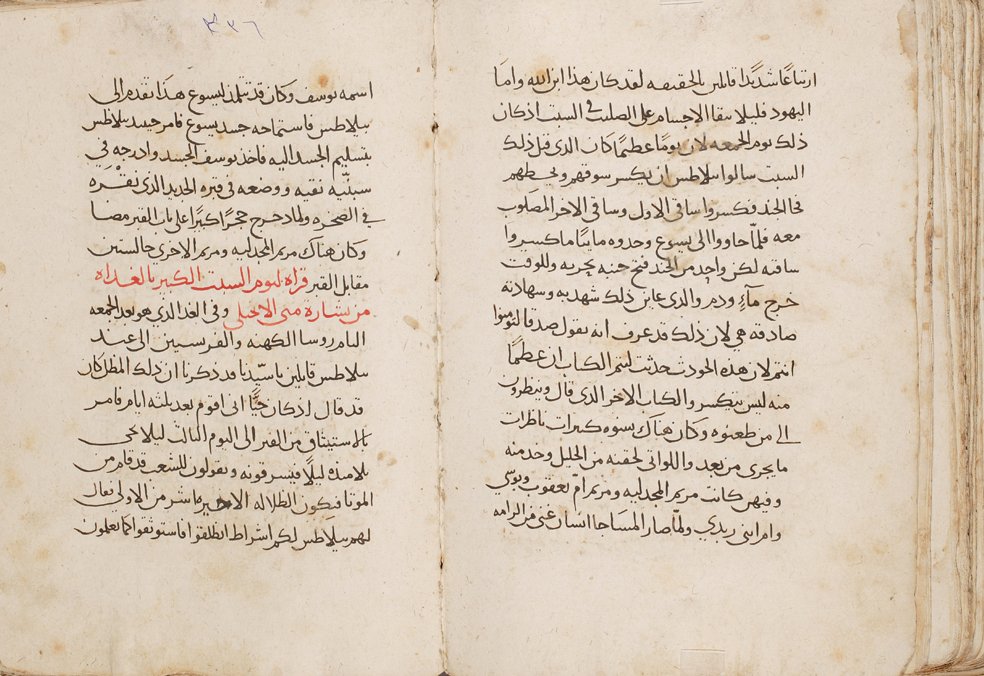 ارتياعًا شديدًا قائلين بالحقيقه لقد كان هذا ابن الله واما
اليهود فليلا تبقا الاجسام على الصليب في السبت اذ كان
ذلك يوم الجمعه لان يومًا عظيمًا كان الذي قبل ذلك
السبت سالوا بيلاطس ان يكسر سوقهم ويحطهم
فجا الجند فكسروا ساقي الاول وساقي الاخر المصلوب
معه فلمّا جاووا الى يسوع وجدوه مايتًا ما كسروا
ساقيه لكن واحد من الجند فتح جنبه بحربه وللوقت
خرج مآءٍ ودم والذي عاين ذلك شهد به وسهادته
صادقه هي لان ذلك قد عرف انه يقول صدقًا لتومنوا
انتم لان هذه الحوادث حدثت ليتم الكتاب ان عظمًا
منه ليس ينكسر والكتاب الاخر الذي قال وينظرون
الي من طعنوه وكان هناك نسوه كثيرات ناظرات
ما يجري من بعد واللواتي لحقنه من الجليل وخدمنه
وفيهن كانت مريم المجدليه ومريم امّ يعقوب ويوسي
وام ابني زبدي ولمّا صار المسا جا انسان غني من الرامه
٣٣٦
اسمه يوسف وكان قد تتلمذ ليسوع هذا تقدم الى
بيلاطس فاستماحه جسد يسوع فامر حينيد بيلاطس
بتسليم الجسد اليه فاخذ يوسف الجسد وادرجه في
سبنيّه نقيه ووضعه في قبره الجديد الذي نقره
في الصخره ولما دحرج حجرًا كبيرًا على باب القبر مضا
وكان هناك مريم المجدليه ومريم الاخري جالستين
مقابل القبر قراه ليوم السبت الكبير بالغداه
من بشارة متى الانجيلي وفي الغد الذي هو بعد الجمعه
التام روسا الكهنه والفرسيين الى عند
بيلاطس قايلين يا سيّدنا قد ذكرنا ان ذلك المظل كان
قد قال اذ كان حيًّا اني اقوم بعد ثلثه ايام فامر
بالاستيثاق من القبر الى اليوم الثالث ليلا يجي
تلاميذه ليلًا فيسرقونه ويقولون للشعب قد قام من
الموتا فتكون الظلاله الاخيره اشر من الاولى فقال
لهم بيلاطس لكم اشراط انطلقوا فاستوثقوا كما تعلمون